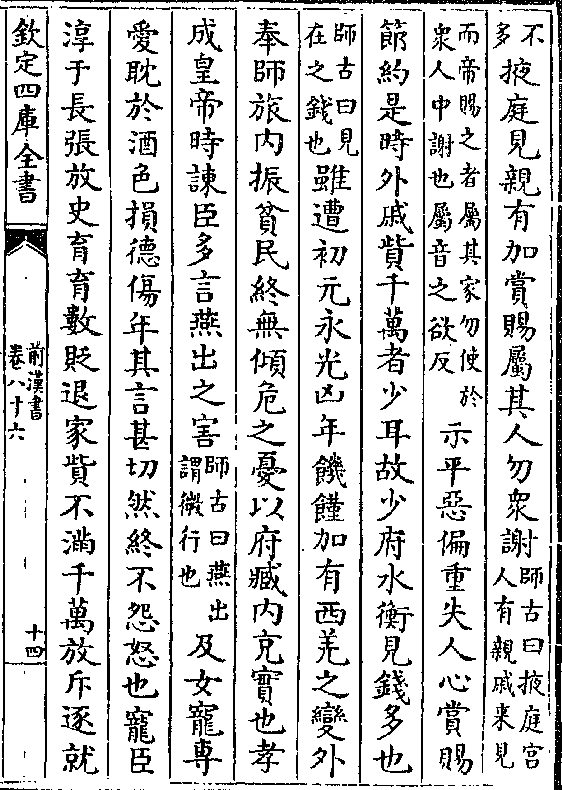 不多掖庭見親有加賞賜屬其人勿衆謝師古曰掖庭宮人有親戚来見
而帝賜之者屬其家勿使於衆人中謝也屬音之欲反示平惡偏重失人心賞賜
節約是時外戚貲千萬者少耳故少府水衡見錢多也
師古曰見在之錢也雖遭初元永光凶年饑饉加有西羌之變外
奉師旅内振貧民終無傾危之憂以府臧内充實也孝
成皇帝時諫臣多言燕出之害師古曰燕出謂微行也及女寵專
愛耽於酒色損德傷年其言甚切然終不怨怒也寵臣
淳于長張放史育育數貶退家貲不滿千萬放斥逐就
欽定四庫全書
前漢書
卷八十六
十四